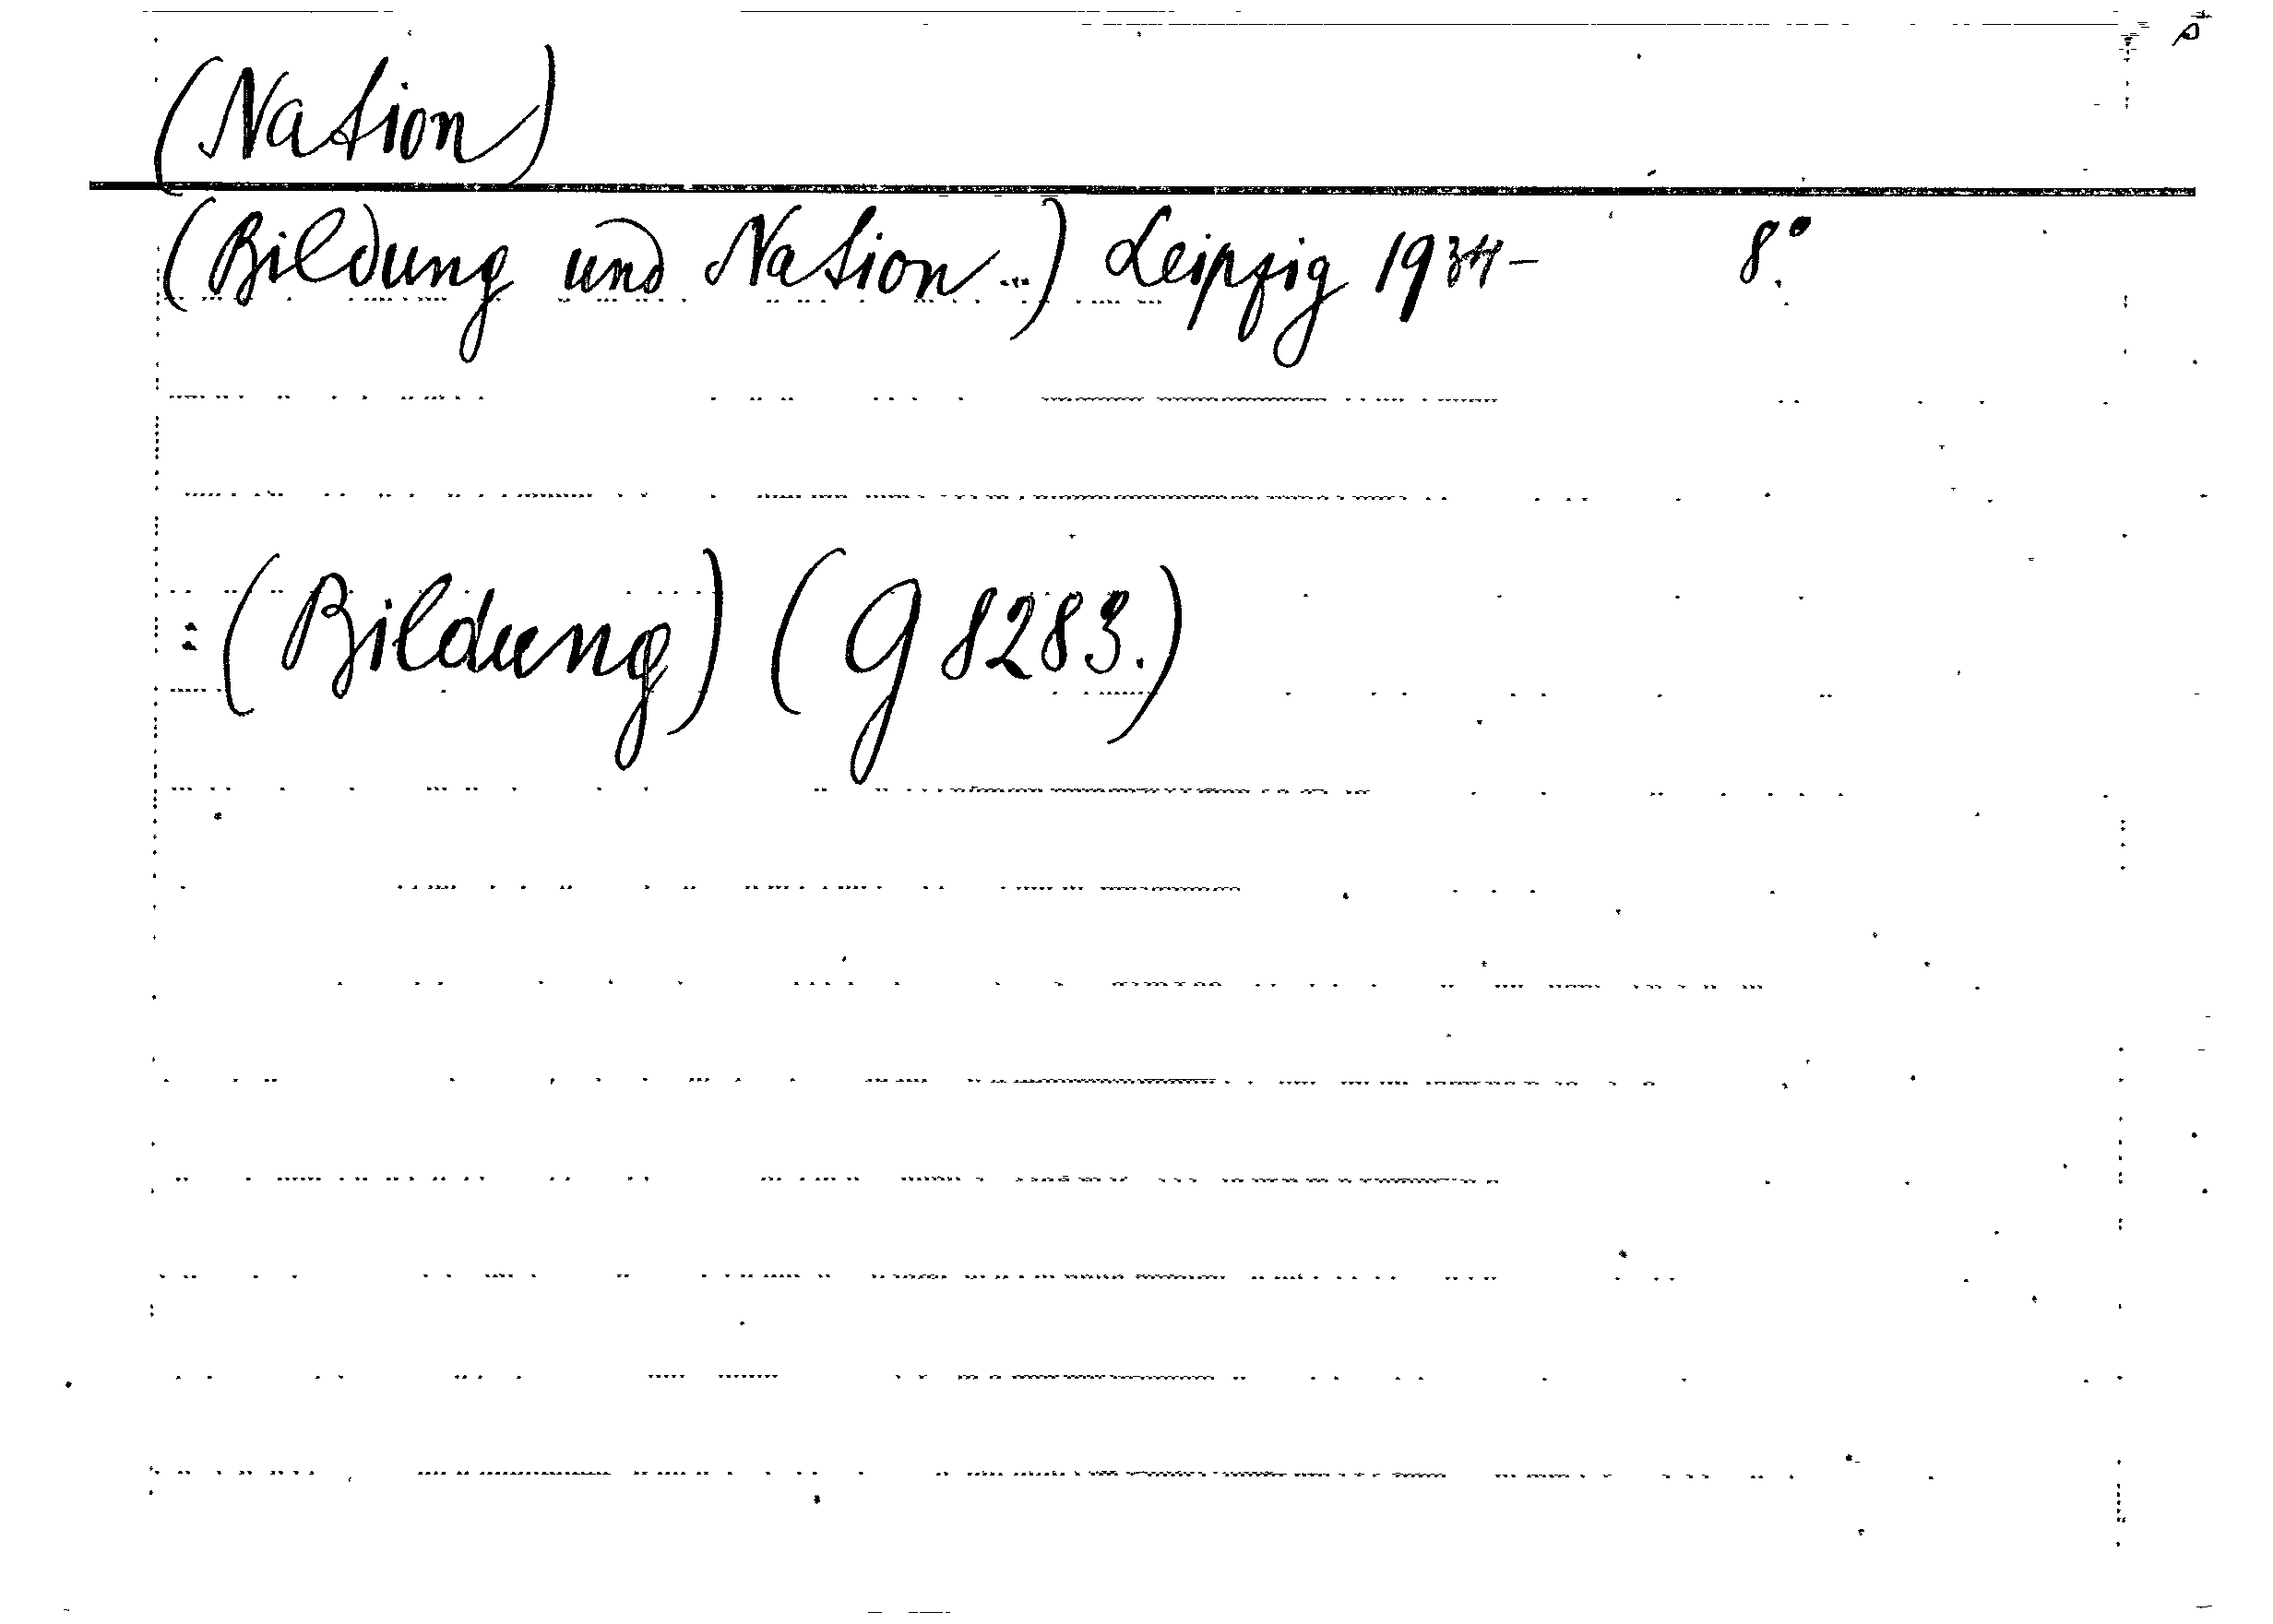 (Nation)
(Bildung und Nation...) Leipzig 1934- 8°.
: (Bildung) (G 8283.)